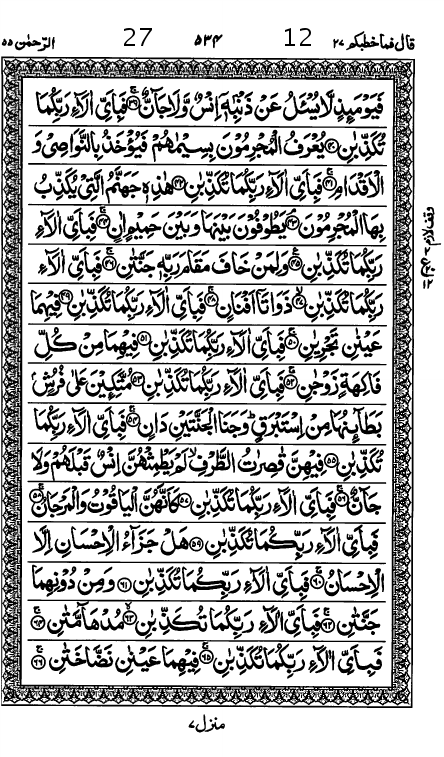 قال فما خطبکم ۲۷ 12 ۵۳۴ 27 الرّحمٰن ۵۵
فَیَوْمَىِٕذٍ لَّا یُسْـَٔلُ عَنْ ذَنْۢبِهٖۤ اِنْسٌ وَّ لَا جَآنٌّۚ۝۳۹ فَبِاَیِّ اٰلَآءِ رَبِّكُمَا
تُكَذِّبٰنِ۝۴۰ یُعْرَفُ الْمُجْرِمُوْنَ بِسِیْمٰىهُمْ فَیُؤْخَذُ بِالنَّوَاصِیْ وَ
الْاَقْدَامِۚ۝۴۱ فَبِاَیِّ اٰلَآءِ رَبِّكُمَا تُكَذِّبٰنِ۝۴۲ هٰذِهٖ جَهَنَّمُ الَّتِیْ یُكَذِّبُ
بِهَا الْمُجْرِمُوْنَۘ۝۴۳ یَطُوْفُوْنَ بَیْنَهَا وَ بَیْنَ حَمِیْمٍ اٰنٍۚ۝۴۴ فَبِاَیِّ اٰلَآءِ
رَبِّكُمَا تُكَذِّبٰنِ۠۝۴۵ وَ لِمَنْ خَافَ مَقَامَ رَبِّهٖ جَنَّتٰنِۚ۝۴۶ فَبِاَیِّ اٰلَآءِ
رَبِّكُمَا تُكَذِّبٰنِۙ۝۴۷ ذَوَاتَاۤ اَفْنَانٍۚ۝۴۸ فَبِاَیِّ اٰلَآءِ رَبِّكُمَا تُكَذِّبٰنِ۝۴۹ فِیْهِمَا
عَیْنٰنِ تَجْرِیٰنِۚ۝۵۰ فَبِاَیِّ اٰلَآءِ رَبِّكُمَا تُكَذِّبٰنِ۝۵۱ فِیْهِمَا مِنْ كُلِّ
فَاكِهَةٍ زَوْجٰنِۚ۝۵۲ فَبِاَیِّ اٰلَآءِ رَبِّكُمَا تُكَذِّبٰنِ۝۵۳ مُتَّكِـِٕیْنَ عَلٰى فُرُشٍۭ
بَطَآىِٕنُهَا مِنْ اِسْتَبْرَقٍ ؕ وَ جَنَا الْجَنَّتَیْنِ دَانٍۚ۝۵۴ فَبِاَیِّ اٰلَآءِ رَبِّكُمَا
تُكَذِّبٰنِ۝۵۵ فِیْهِنَّ قٰصِرٰتُ الطَّرْفِۙ لَمْ یَطْمِثْهُنَّ اِنْسٌ قَبْلَهُمْ وَ لَا
جَآنٌّۚ۝۵۶ فَبِاَیِّ اٰلَآءِ رَبِّكُمَا تُكَذِّبٰنِۚ۝۵۷ كَاَنَّهُنَّ الْیَاقُوْتُ وَ الْمَرْجَانُۚ۝۵۸
فَبِاَیِّ اٰلَآءِ رَبِّكُمَا تُكَذِّبٰنِ۝۵۹ هَلْ جَزَآءُ الْاِحْسَانِ اِلَّا
الْاِحْسَانُۚ۝۶۰ فَبِاَیِّ اٰلَآءِ رَبِّكُمَا تُكَذِّبٰنِ۝۶۱ وَ مِنْ دُوْنِهِمَا
جَنَّتٰنِۚ۝۶۲ فَبِاَیِّ اٰلَآءِ رَبِّكُمَا تُكَذِّبٰنِۙ۝۶۳ مُدْهَآمَّتٰنِۚ۝۶۴
فَبِاَیِّ اٰلَآءِ رَبِّكُمَا تُكَذِّبٰنِۚ۝۶۵ فِیْهِمَا عَیْنٰنِ نَضَّاخَتٰنِۚ۝۶۶
منزل ۷